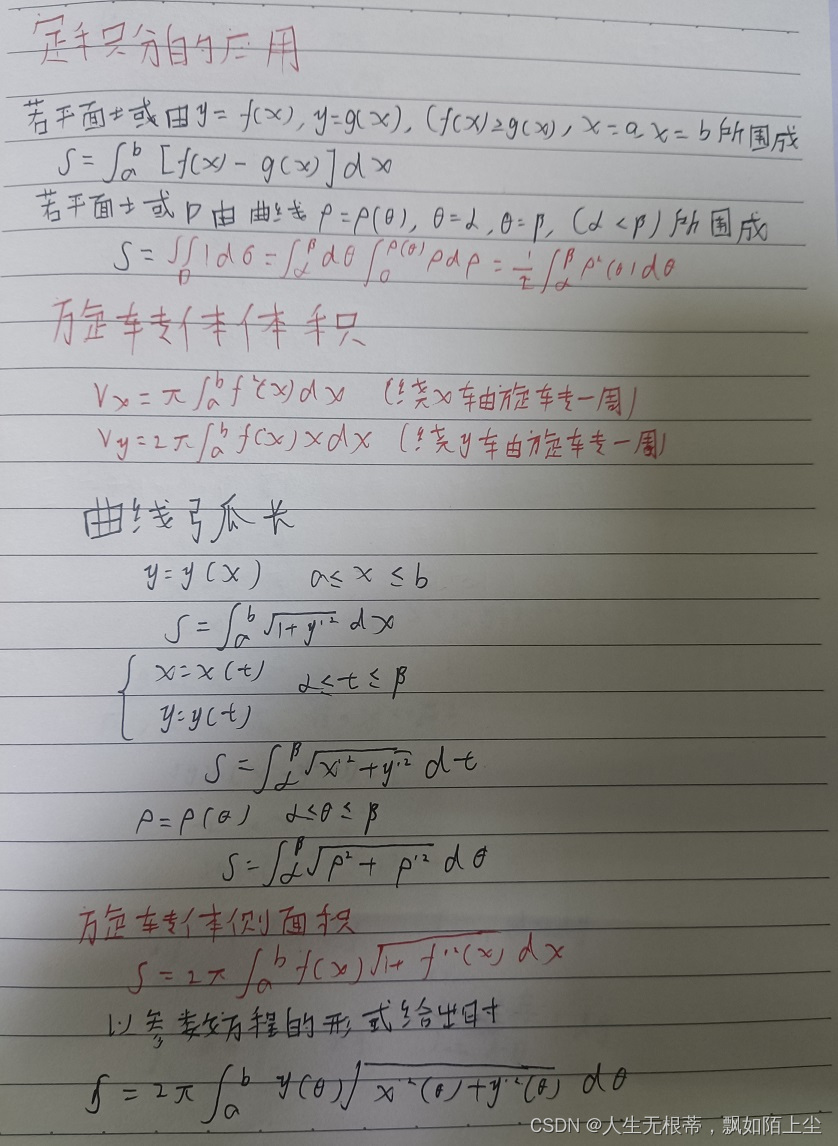 定积分的应用
若平面域由y=f(x), y=g(x), (f(x)≥g(x), x=a, x=b 所围成
S=∫_a^b [f(x)-g(x)]dx
若平面域D由曲线ρ=ρ(θ), θ=α, θ=β, (α<β)所围成
S=∬_D 1dσ=∫_α^β dθ∫_0^{ρ(θ)} ρdρ=1/2∫_α^β ρ²(θ)dθ
旋转体体积
Vx=π∫_a^b f²(x)dx (绕x轴旋转一周)
Vy=2π∫_a^b f(x)xdx (绕y轴旋转一周)
曲线弧长
y=y(x) a≤x≤b
S=∫_a^b √(1+y'²) dx
{ x=x(t) α≤t≤β
y=y(t)
S=∫_α^β √(x'²+y'²) dt
ρ=ρ(θ) α≤θ≤β
S=∫_α^β √(ρ²+ρ'²) dθ
旋转体侧面积
S=2π∫_a^b f(x)√(1+f'²(x)) dx
以参数方程的形式给出时
S=2π∫_a^b y(θ)√(x'²(θ)+y'²(θ)) dθ
CSDN @人生无根蒂，飘如陌上尘